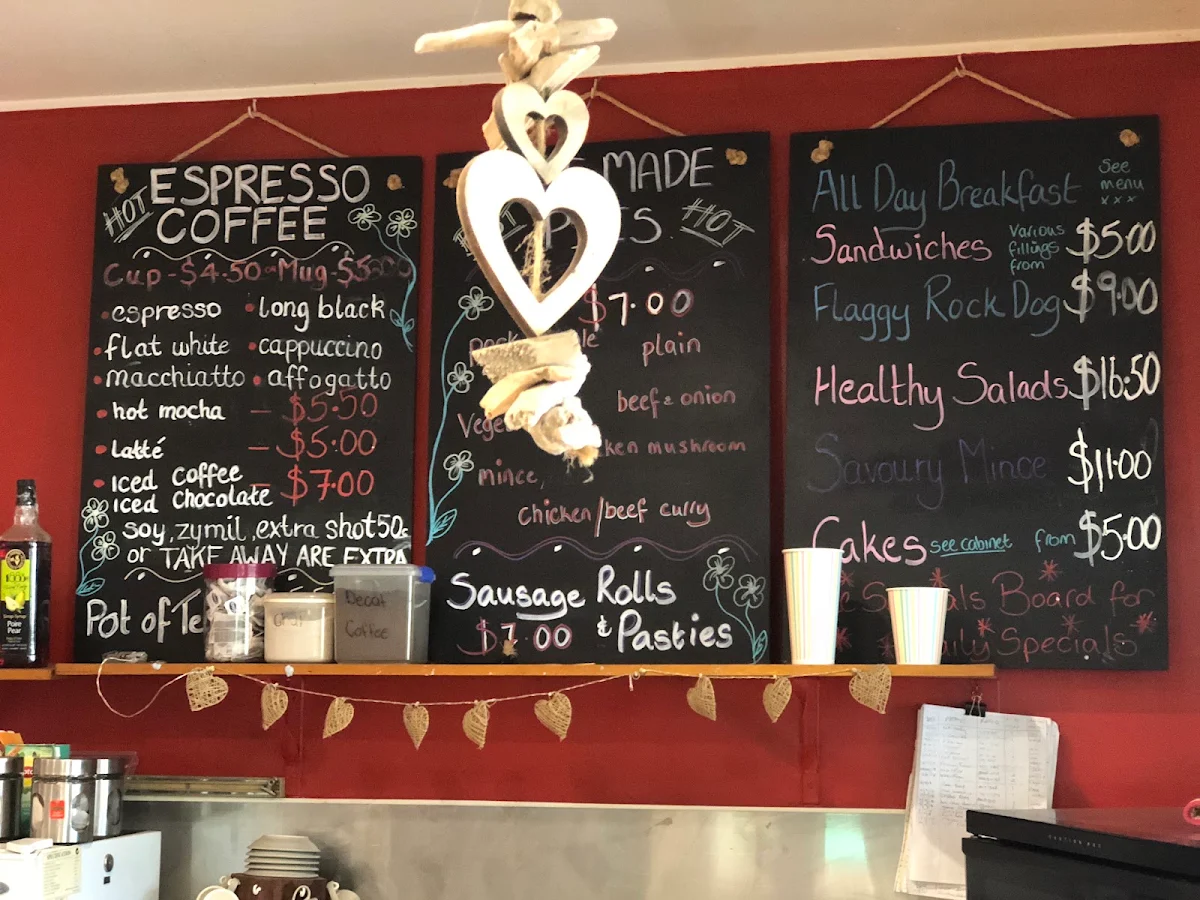 HOT ESPRESSO
COFFEE
Cup - $4.50 Mug -
• espresso • long black
• flat white • cappuccino
• macchiatto • affogatto
• hot mocha - $5.50
• Latté - $5.00
• Iced Coffee
Iced Chocolate - $7.00
soy, zymil, extra shot 50c
or TAKE AWAY ARE EXTRA
Pot of
MADE
HOT
$7.00
plain
beef & onion
mushroom
mince,
chicken/beef curry
Sausage Rolls
$7.00 & Pasties
All Day Breakfast See menu xxx
Sandwiches Various fillings from $5.00
Flaggy Rock Dog $9.00
Healthy Salads $16.50
Savoury Mince $11.00
Cakes see cabinet from $5.00
Board for
Specials
Decaf
Coffee
1883
Poire
Pear